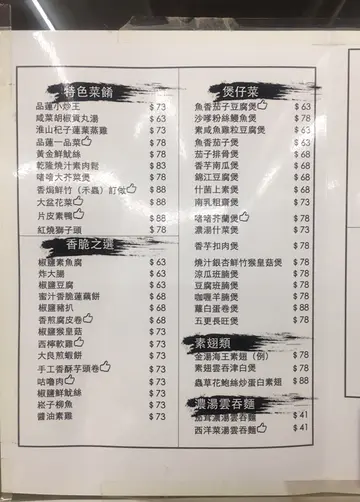 特色菜餚
品蓮小炒王 $73
咸菜胡椒貢丸湯 $63
淮山杞子蓮藁蒸雞 $73
品蓮一品菜 $78
黃金鮮魷絲 $78
乾隆燒汁素肉鬆 $83
啫啫大芥菜煲 $78
香焗鮮竹(禾蟲)訂做 $88
大盆花菜 $88
片皮素鴨 $88
紅燒獅子頭 $78
香脆之選
椒鹽素魚腐 $63
炸大腸 $63
椒鹽豆腐 $63
蜜汁香脆蓮藕餅 $68
椒鹽豬扒 $68
香煎腐皮卷 $68
椒鹽猴皇菇 $73
西檸軟雞 $73
大良煎蝦餅 $73
手工香酥芋頭卷 $73
咕嚕肉 $73
椒鹽鮮魷絲 $73
崧子柳魚 $73
醬油素雞 $73
煲仔菜
魚香茄子豆腐煲 $63
沙嗲粉絲鰻魚煲 $78
素咸魚雞粒豆腐煲 $63
魚香茄子煲 $63
茄子排骨煲 $68
香芋南瓜煲 $68
錦江豆腐煲 $68
什菌上素煲 $68
南乳粗齋煲 $73
啫啫芥蘭煲 $78
濃湯什菜煲 $73
香芋扣肉煲 $78
燒汁銀杏鮮竹猴皇菇煲 $78
涼瓜班腩煲 $78
豆腐班腩煲 $78
咖喱羊腩煲 $78
蘿白蛋卷煲 $88
五更長旺煲 $78
素翅類
金湯海王素翅(例) $78
素翅雲吞津白煲 $78
蟲草花鮑絲炒蛋白素翅 $88
濃湯雲吞麵
雲吞濃湯麵 $41
西洋菜湯雲吞麵 $41